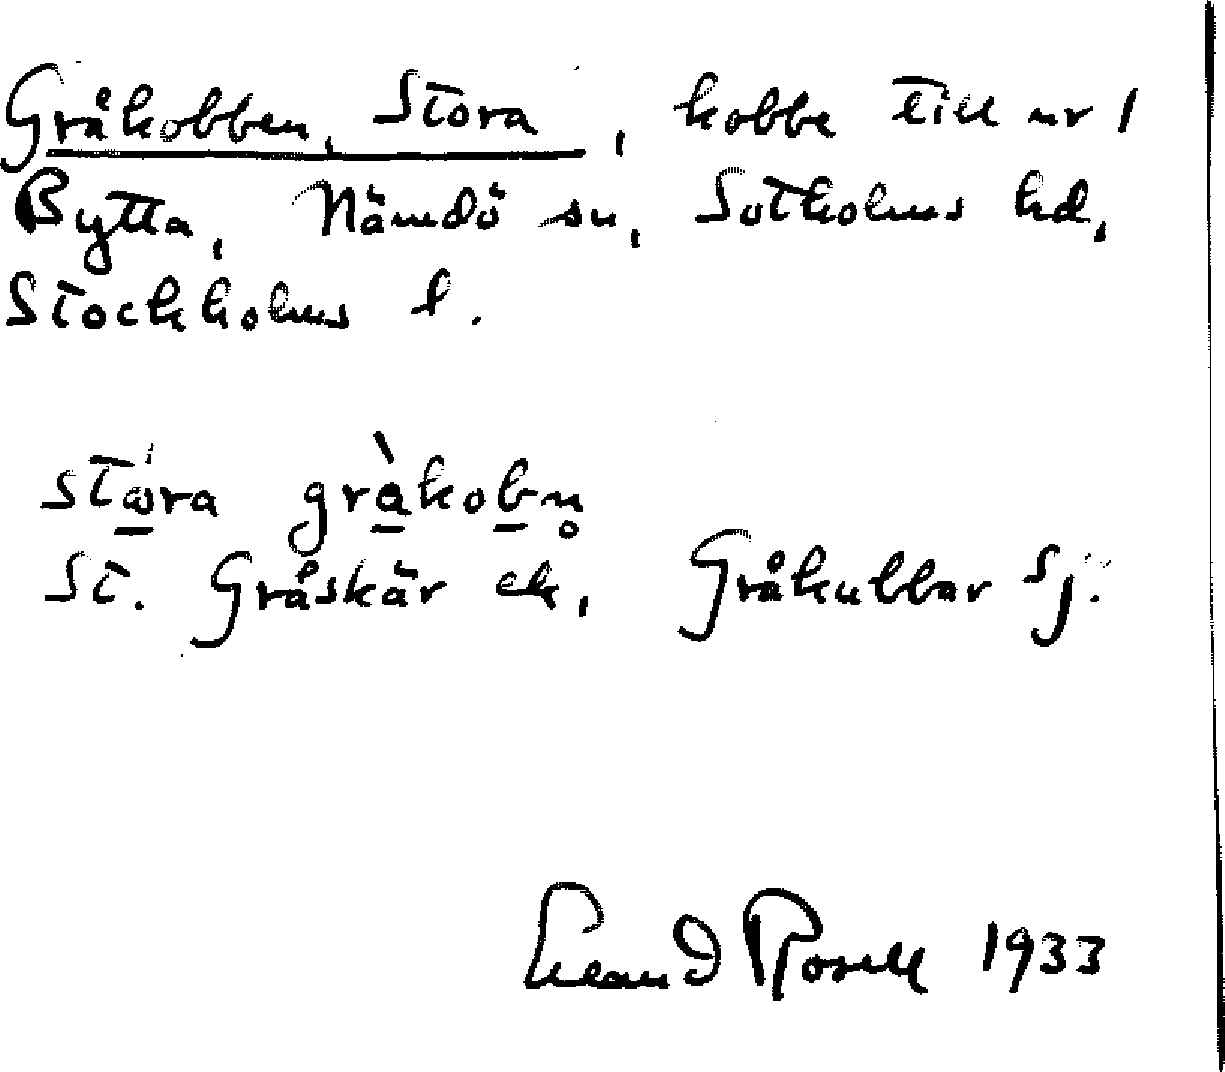 Gråkobben, Stora, kobbe till nr 1
Bytta, Nämdö sn, Sotholms hd,
Stockholms l.
stὼra gràkobn̥
St. Gråskär ek, Gråkubbar sj.
Erland Rosell 1933